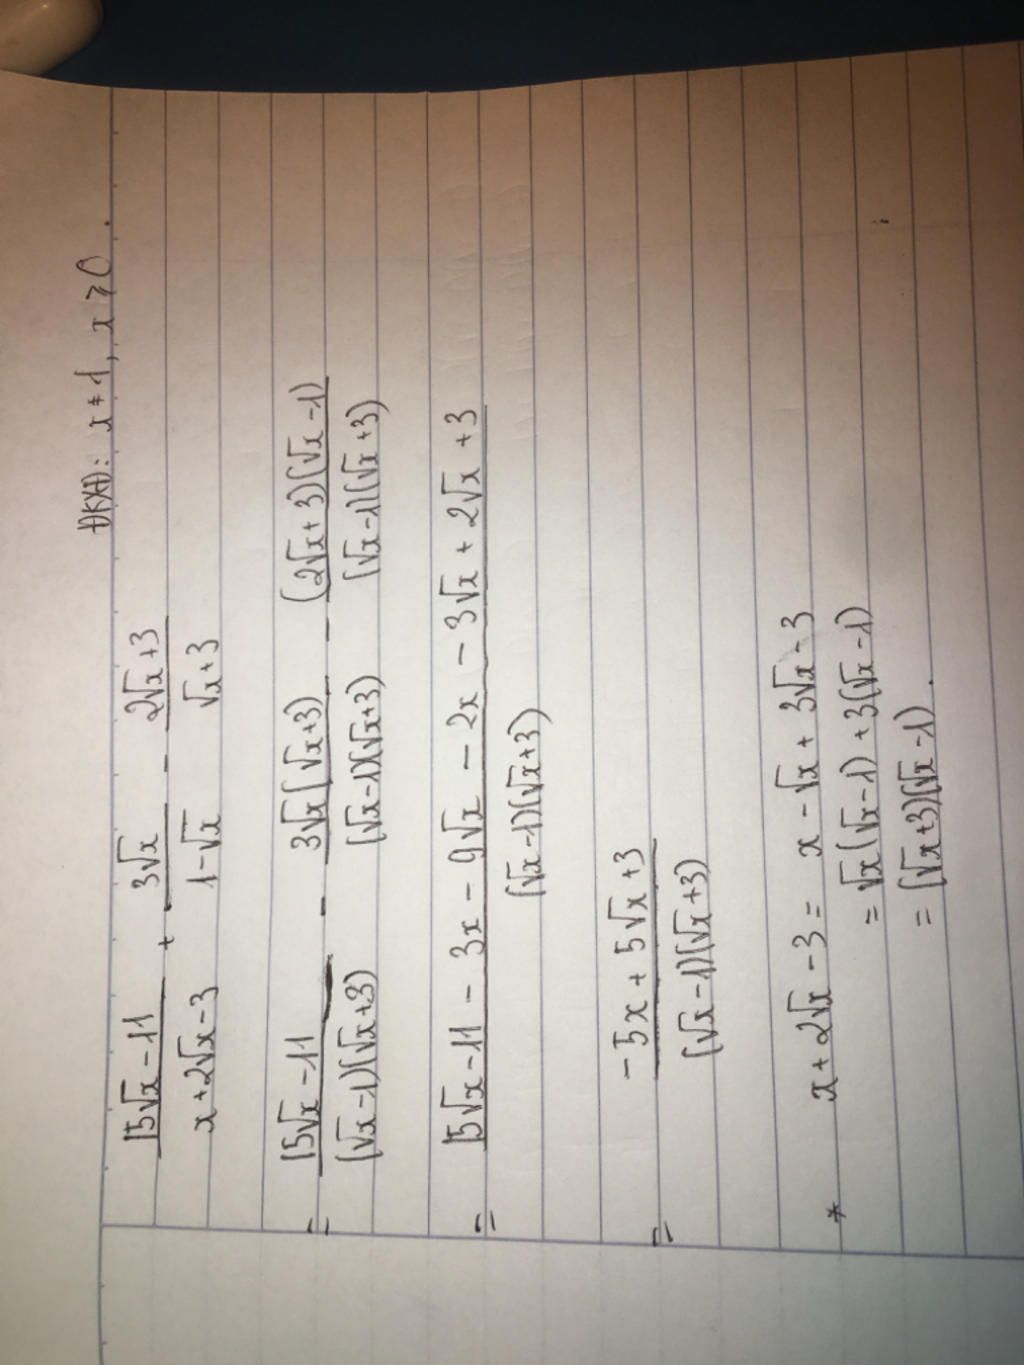 ĐKXĐ: x ≠ 1, x ⩾ 0.
\frac{15√x - 11}{x + 2√x - 3} + \frac{3√x}{1 - √x} - \frac{2√x + 3}{√x + 3}
= \frac{15√x - 11}{(√x - 1)(√x + 3)} - \frac{3√x(√x + 3)}{(√x - 1)(√x + 3)} - \frac{(2√x + 3)(√x - 1)}{(√x - 1)(√x + 3)}
= \frac{15√x - 11 - 3x - 9√x - 2x - 3√x + 2√x + 3}{(√x - 1)(√x + 3)}
= \frac{-5x + 5√x + 3}{(√x - 1)(√x + 3)}
* x + 2√x - 3 = x - √x + 3√x - 3
= √x(√x - 1) + 3(√x - 1)
= (√x + 3)(√x - 1).